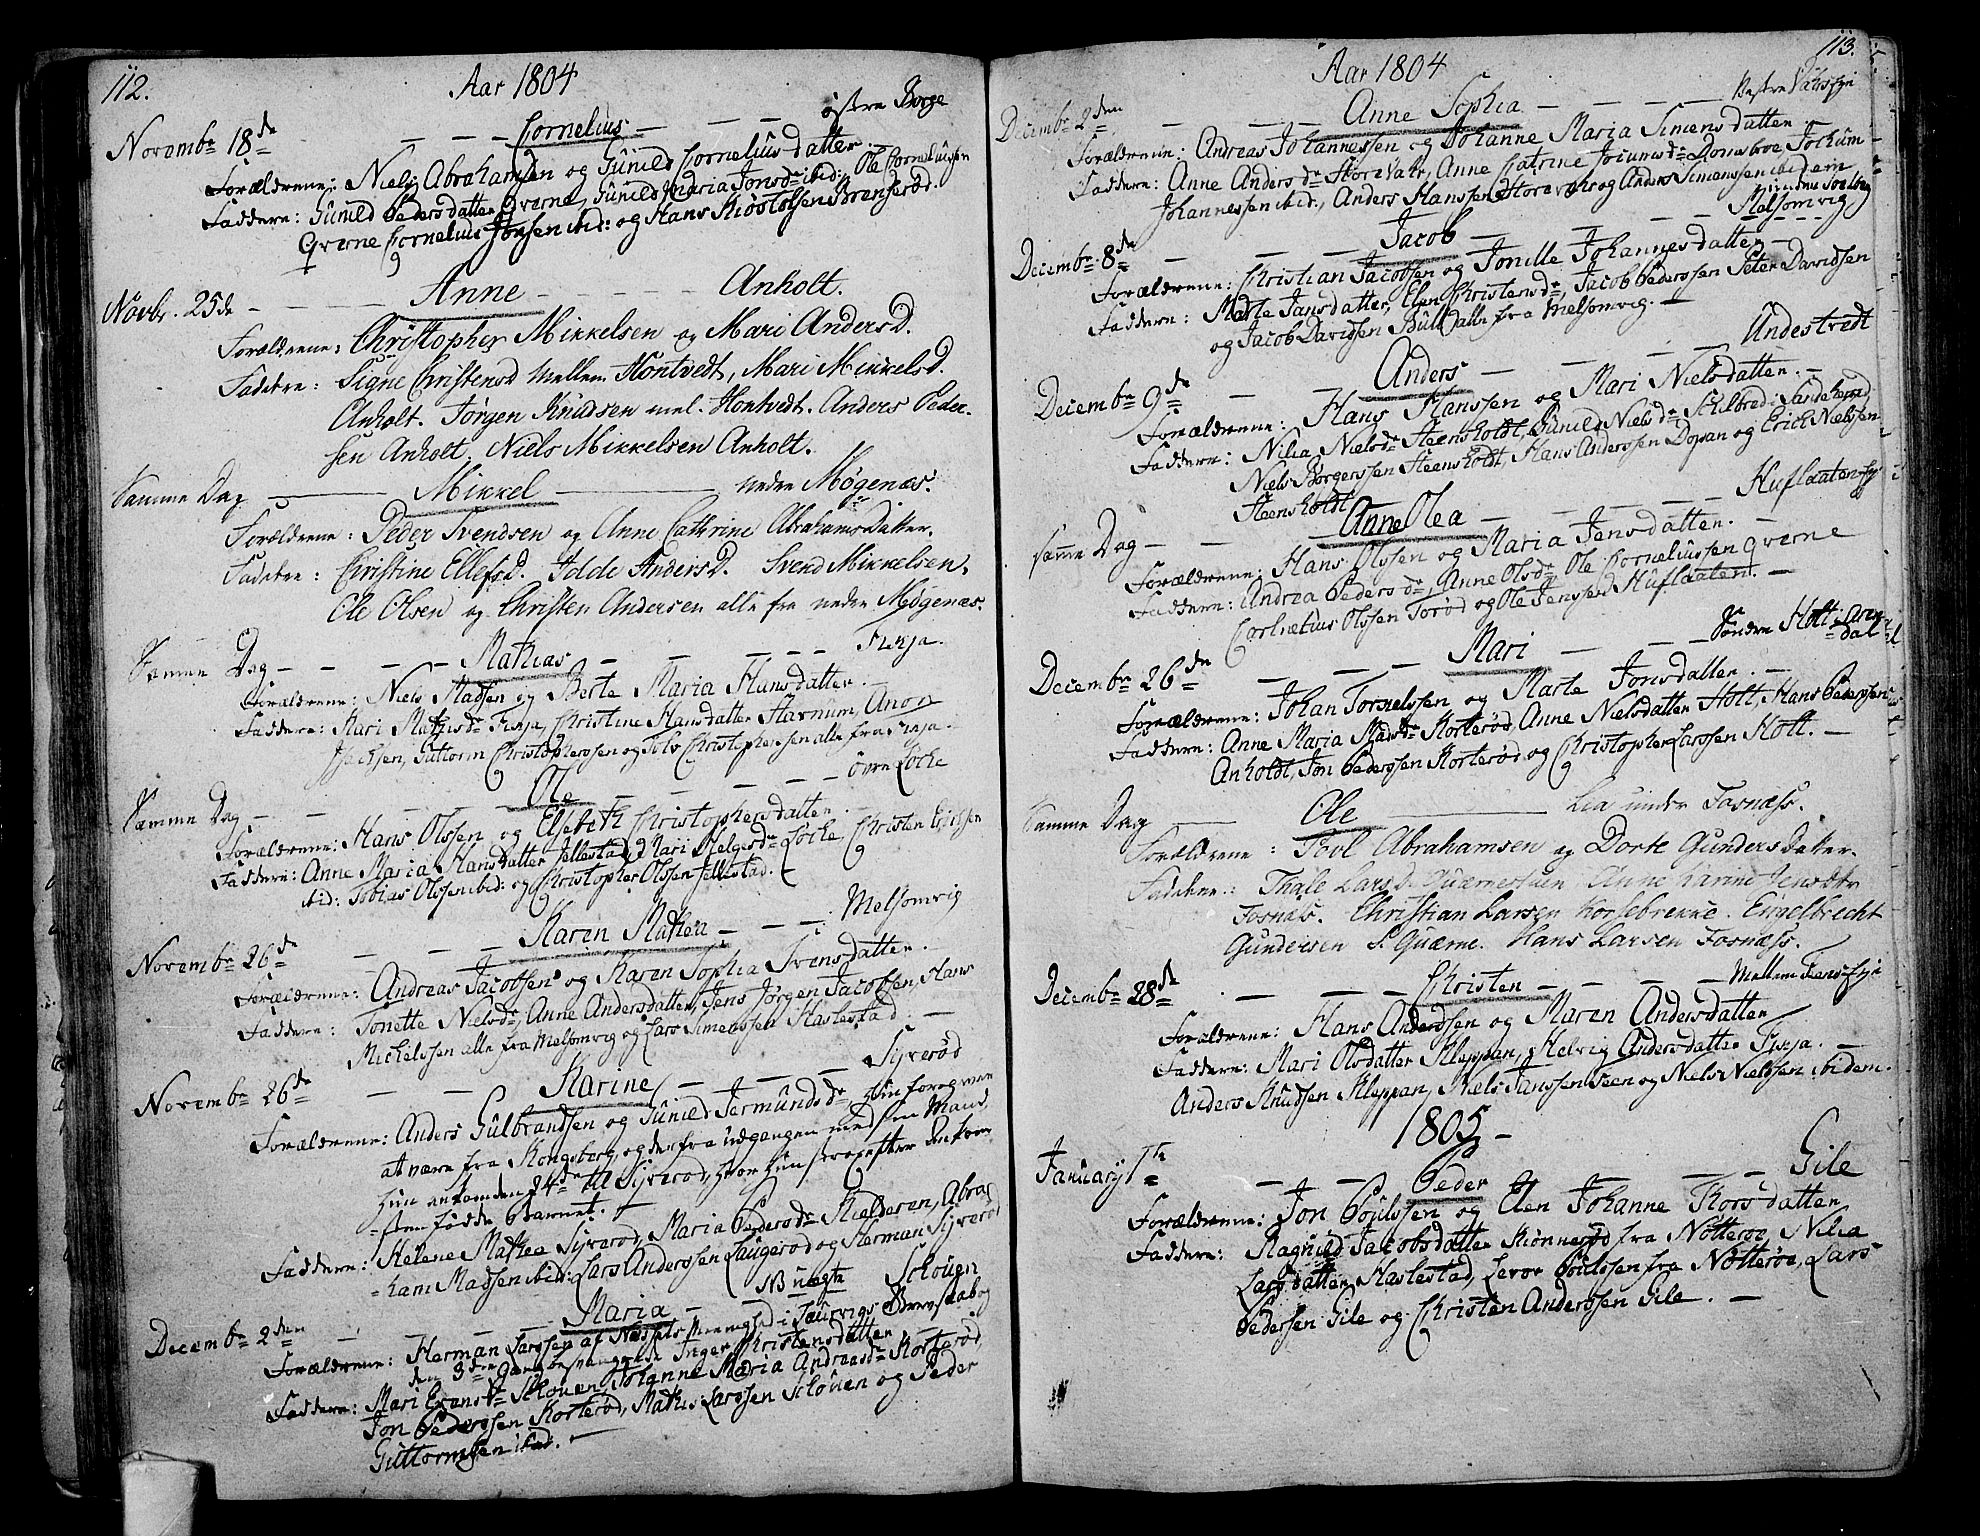 112.
Aar 1804
Novembr 18de — — — Cornelius — — — østre Borge
Forældrene: Niels Abrahamsen og Gunild Cornelius datter.
Faddere: Gunild Pedersdatter Qværne, Gunild Maria Jonsdr ibid: Ole Corneliussen
Qværne Cornelius Jonsen ibid: og Hans Kiøstolsen Brænserød.
Novbr. 25de — — — Anne — — — Anholt.
Forældrene: Christopher Mikkelsen og Mari Anders D.
Faddere: Signe Christensd Mellem Hontvedt, Mari Mikkels D.
Anholt. Jørgen Knudsen mel. Hontvedt. Anders Peder-
sen Anholt. Niels Mikkelsen Anholt.
Samme Dag — Mikkel — nedre Møgenæs.
Forældrene: Peder Svendsen og Anne Cathrine Abrahamsdatter.
Faddere: Christine Ellefs D. Idde Anders D. Svend Mikkelsen.
Ole Olsen og Christen Andersen alle fra nedre Møgenæs.
Samme Dag — — — Mathias — — — Firja.
Forældrene: Niels Madsen og Berte Maria Hansdatter.
Faddere: Kari Mathisdr Firja, Christine Hansdatter Havnum, Anon
Isachsen, Guttorm Christophersen og Tolv Christophersen alle fra Firja.
Samme Dag — — — Ole — — — øvre Løcke
Forældrene: Hans Olssen og Elsebeth Christophersdatter.
Faddere: Anne Maria Hansdatter Jellestad, Mari Helgesdr Løcke, Christen Erichsen
ibid: Tobias Olssen ibid: og Christopher Olssen Jellestad.
Novembr 26de — — — Karen Mathea — — — Melsomvig
Forældrene: Andreas Jacobsen og Karen Sophia Svensdatter.
Faddere: Tonette Nielsdr, Anne Andersdatter, Jens Jørgen Jacobsen, Hans
Michelssen alle fra Melsomvig og Lars Simenssen Haslestad.
Novembr 26de — — Karine — — — Syverød
Forældrene: Anders Gulbrandsen og Gunild Jermundsdr hun foregivere
at være fra Kongsberg, og derfra udgangen med sin Mand,
hun ankom den 24de til Syverød, hvor hun strax efter Ankom-
sten fødde Barnet.
Faddere: Helene Mathea Syverød, Maria Pedersdr Kielderen, Abra-
ham Madsen ibid: Lars Anderssen Laugerød og Herman Syverød
NB uægte
Decembr 2den — — — Maria — — Schouen
Forældrene: Herman Larssen af Næssets Menighed i Laurvigs Grevskab og
den 3die Gang besvangrede Inger Christensdatter
Faddere: Mari Evensdr Schouen, Johanne Maria Andreasdr Korterød,
Jon Pederssen Korterød, Mathis Larssen Schouen og Peder
Guttormssen ibid.
113.
Aar 1804
Decembr 2den — — — Anne Sophia — — —
Forældrene: Andreas Johannessen og Johanne Maria Simensdatter
Faddere: Anne Andersdr Storevahr, Anne Catrine Jocumsdr Jochum
Johannessen ibid., Anders Hanssen Storevahr og Anders Simenssen ibidem
Decembr 8de — — — Jacob — — — Melsomvig
Forældrene: Christian Jacobsen og Jonille Johannesdatter
Faddere: Marte Jansdatter, Elen Christensdr, Jacob Pederssen Peter Davidsen
og Jacob Davidsen Bull alle fra Melsomvig.
Decembr 9de — — Anders — — — Undestvedt
Forældrene: Hans Hanssen og Mari Nielsdatter.
Faddere: Nilia Nielsdr Steensholdt, Gunild Nielsdr Schilbred i Sandeherred
Niels Børgerssen Steensholdt, Hans Anderssen Dopan og Erich Nielssen
Steensholdt
Samme Dag — — Anne Olea — — — Huflaateneje
Forældrene: Hans Olssen og Maria Jensdatter.
Faddere: Andrea Pedersdr, Anne Olsdr Ole Corneliussen Qværne
Cornelius Olssen Torød og Ole Jenssen Huflaaten.
Decembr 26de — — — Mari — — — Søndre Holt i Arendal
Forældrene: Johan Tornelssen og Marte Jonsdatter.
Faddere: Anne Maria Madsdr Korterød, Anne Nielsdatter Holt, Hans Pederssen
Anholdt, Jon Pederssen Korterød og Christopher Larssen Holt.
Samme Dag — Ole — Lia under Fosnæss.
Forældrene: Povl Abrahamsen og Dorte Gundersdatter.
Faddere: Thale Lars D. Quærnestuen Anne Karine Jensdtr
Fosnæss. Christian Larsen Korsebrekke. Engelbrecht
Gundersen S. Quærne. Hans Larsen Fosnæss.
Decembr 28de — — — Christen — — — Mellem
Forældrene: Hans Anderssen og Maren Andersdatter
Faddere: Mari Olsdatter Kleppan, Helvig Andersdatter Firja.
Anders Knudsen Kleppan, Niels Janssen Feen og Niels Nielssen ibidem.
1805
January 1te — — Peder — — Gile
Forældrene: Jon Poulssen og Elen Johanne Thorsdatter
Faddere: Ragnild Jacobsdatter Rønnerød fra Nøtterøe, Nilia
Larsdatter Haslestad, Levor Poulssen fra Nøtterøe, Lars
Pedersen Gile og Christen Anderssen Gile.